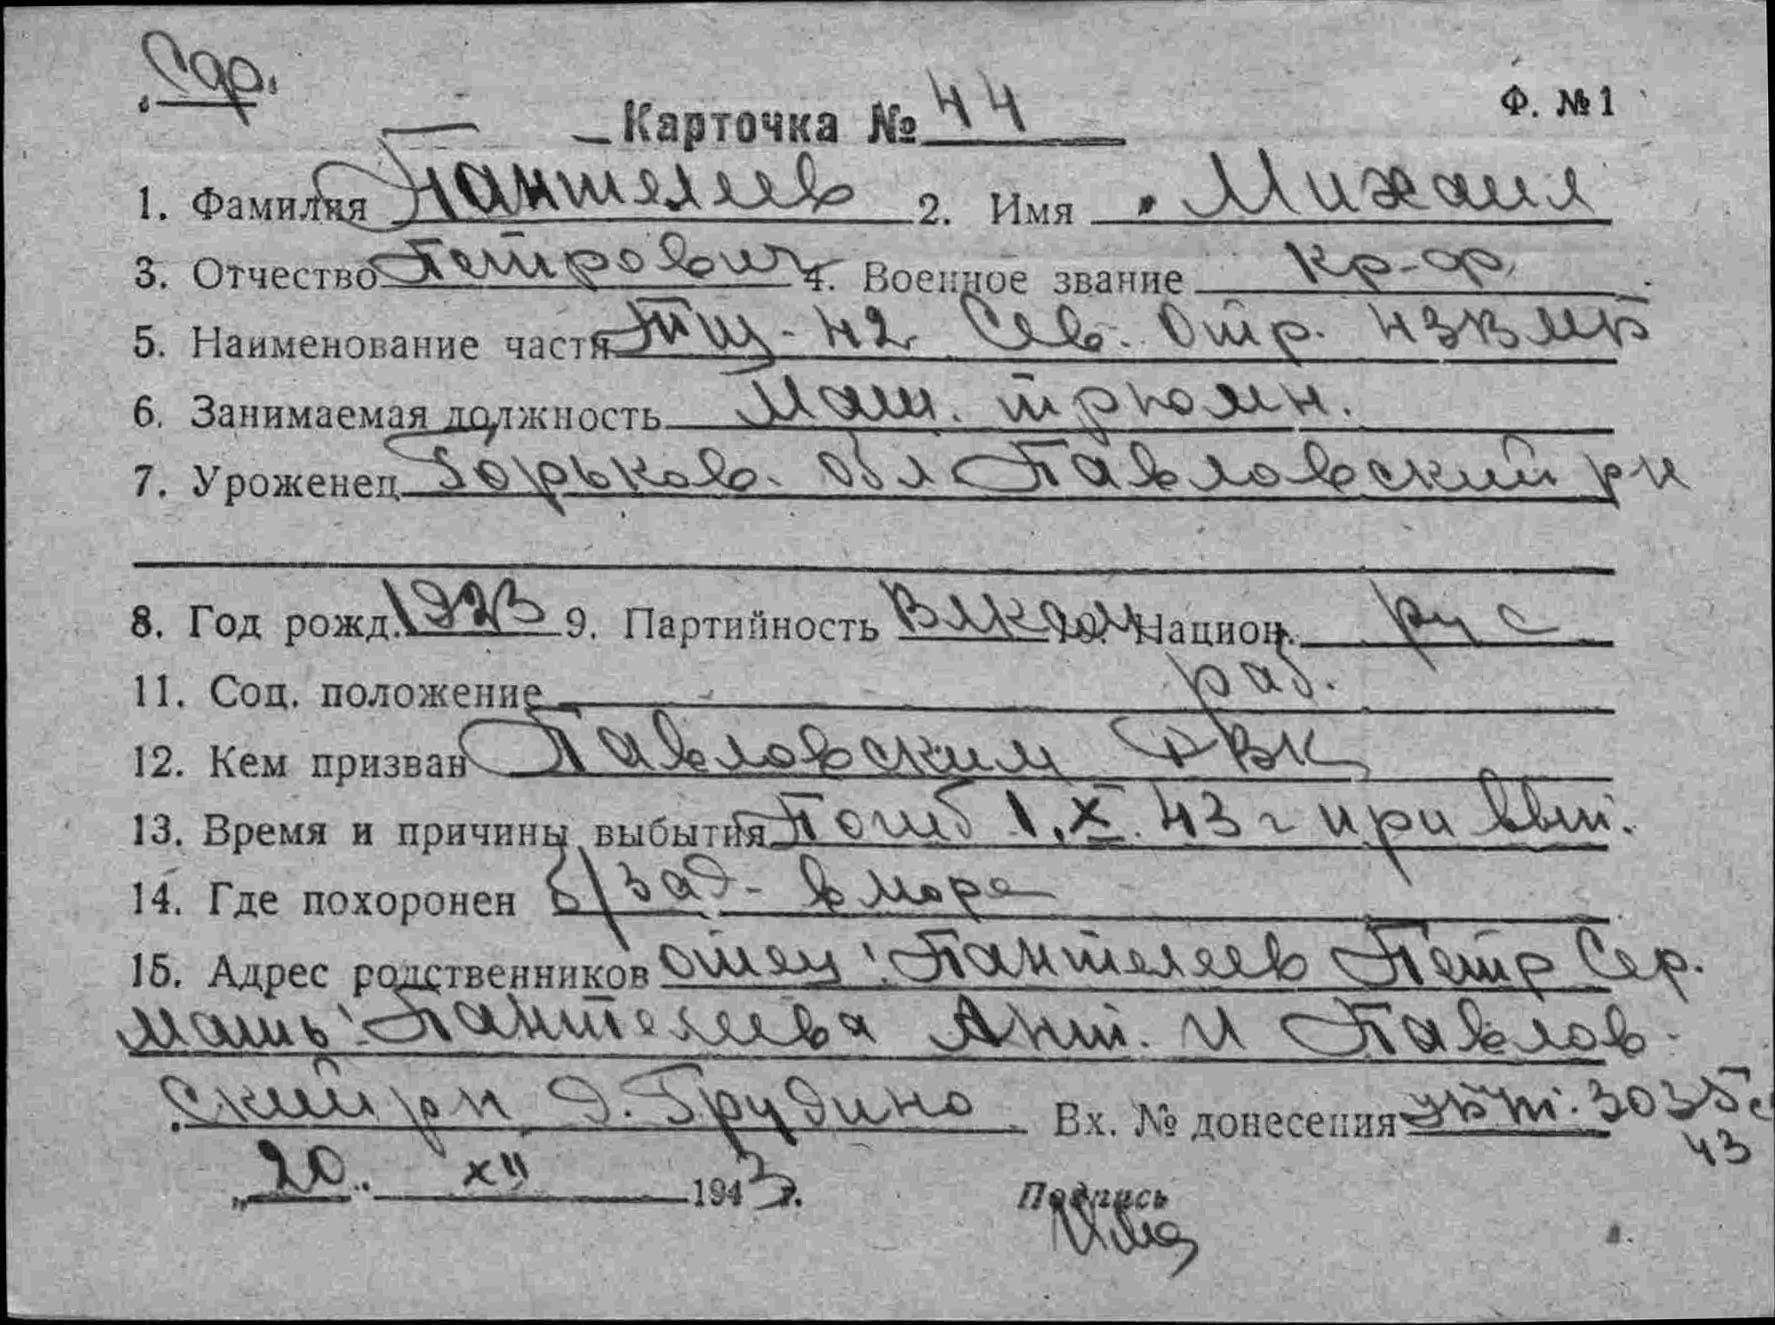 Карточка № 44 Ф. № 1
1. Фамилия Пантелеев 2. Имя Михаил
3. Отчество Петрович 4. Военное звание кр-фл.
5. Наименование части Тщ-42 Сев. Отр.
6. Занимаемая должность Маш. трюмн.
7. Уроженец Горьков. обл Павловский р-н
8. Год рожд. 1923 9. Партийность ВЛКСМ 10. Национ. рус
11. Соц. положение раб.
12. Кем призван Павловским РВК
13. Время и причины выбытия Погиб 1.X.43 г при вып.
14. Где похоронен б/зад- в море
15. Адрес родственников отец: Пантелеев Петр Сер.
мать: Пантелеева Ант. И Павлов-
ский р-н д. Грудино Вх. № донесения
43
„20." XII 1943г. Подпись